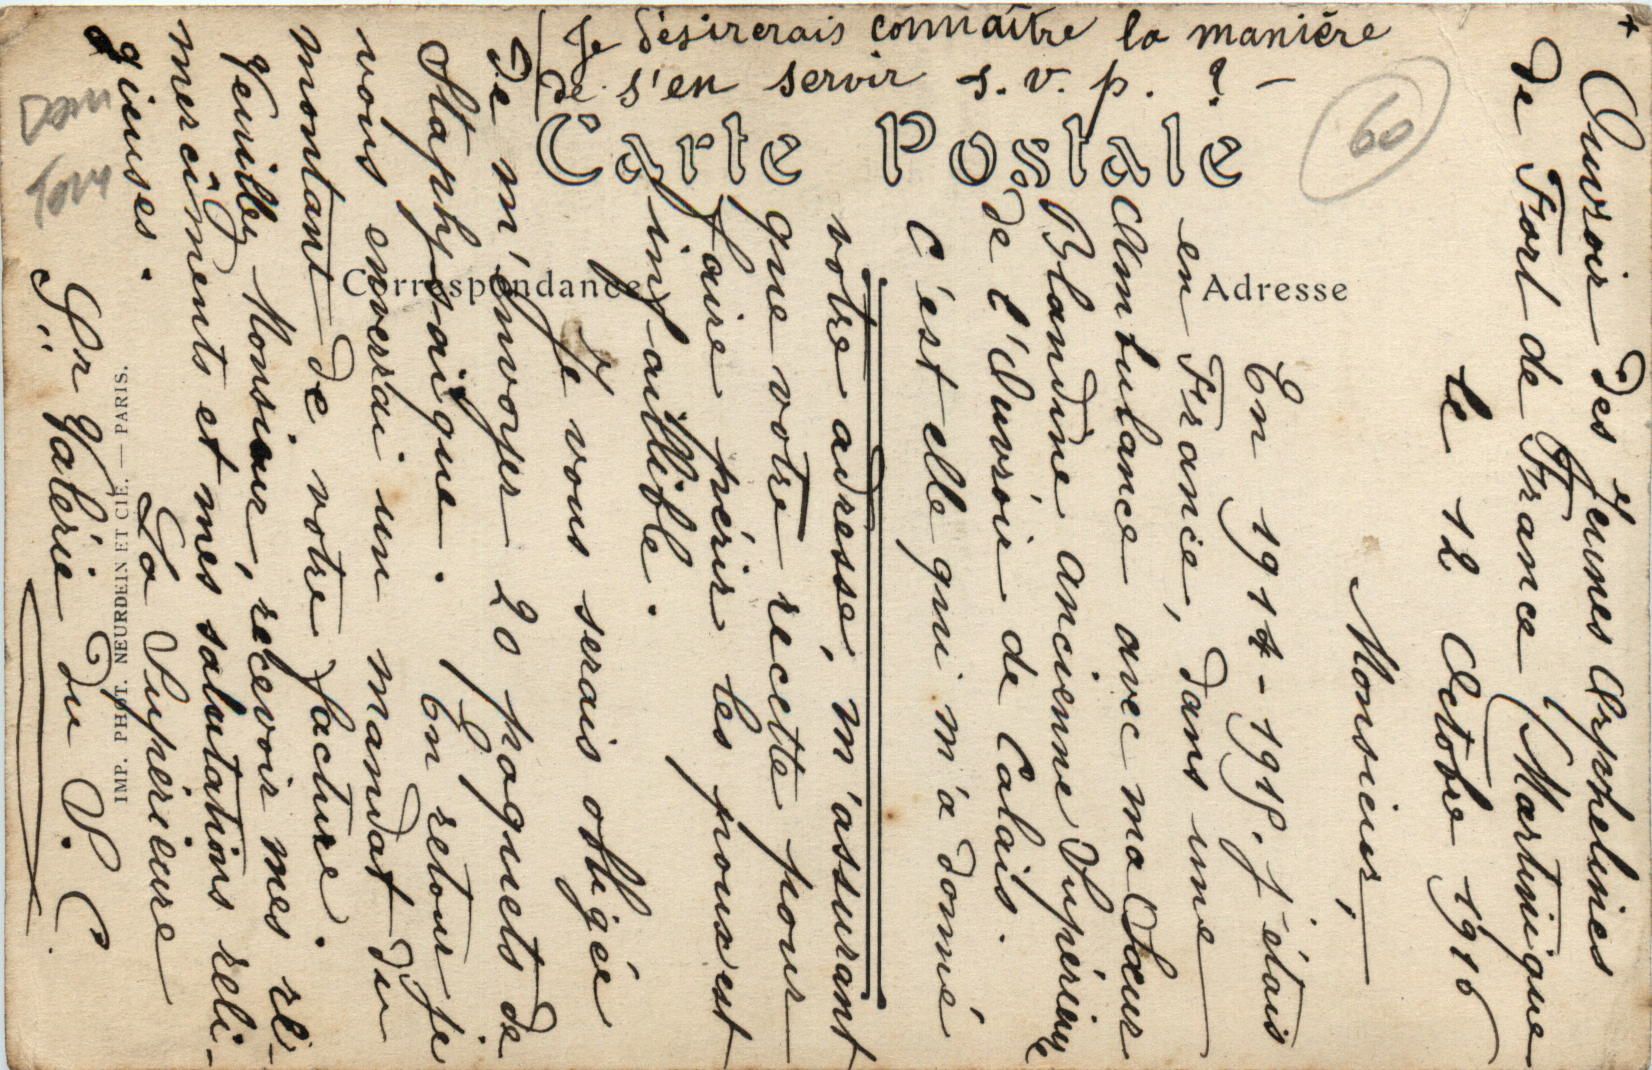 Je désirerais connaître la manière
de s'en servir s. v. p. ? -
Carte Postale
Correspondance
Adresse
60
Dom
Tom
Ouvroir des Jeunes Orphelines
de Fort de France (Martinique
le 12 Octobre 1916
Monsieur,
En 1914-1915, j'étais
en France, dans une
ambulance avec ma Sœur
Blandine ancienne Supérieure
de l'Ouvroir de Calais.
C'est elle qui m'a donné
votre adresse, m'assurant
que votre recette pour
faire périr les poux est
infaillible.
Je vous serais obligée
de m'envoyer 20 paquets de
Staphysaigue. En retour je
vous enverrai un mandat du
montant de votre facture.
Veuillez Monsieur, recevoir mes re-
mercîments et mes salutations reli-
gieuses.
La Supérieure
Sr Valérie du S. C.
IMP. PHOT. NEURDEIN ET CIE. — PARIS.